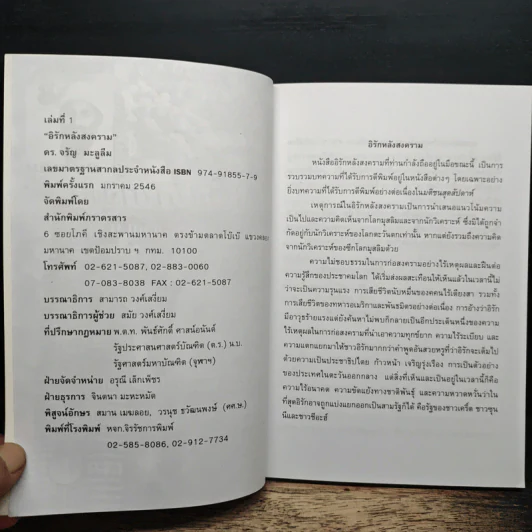 เล่มที่ 1
"อิรักหลังสงคราม"
ดร. จรัญ มะลูลีม
เลขมาตรฐานสากลประจำหนังสือ ISBN 974-91855-7-9
พิมพ์ครั้งแรก มกราคม 2546
จัดพิมพ์โดย
สำนักพิมพ์ภราดรสาร
6 ซอยโภคี เชิงสะพานมหานาค ตรงข้ามตลาดโบ๊เบ๊
มหานาค เขตป้อมปราบ ฯ กทม. 10100
โทรศัพท์ 02-621-5087, 02-883-0060
07-083-8038 FAX : 02-621-5087
บรรณาธิการ สามารถ วงศ์เสงี่ยม
บรรณาธิการผู้ช่วย สมัย วงศ์เสงี่ยม
ที่ปรึกษากฎหมาย พ.ต.ท. พันธ์ศักดิ์ ศาสน์อนันต์
รัฐประศาสนศาสตร์บัณฑิต (ต.ร.) น.บ.
รัฐศาสตร์มหาบัณฑิต (จุฬาฯ)
ฝ่ายจัดจำหน่าย อรุณี เลิกเพ็ชร
ฝ่ายธุรการ จินตนา มะหะหมัด
พิสูจน์อักษร สมาน เมฆลอย, วรนุช ธวัฒนพงษ์ (ศศ.บ.)
พิมพ์ที่โรงพิมพ์ หจก.จิรรัชการพิมพ์
02-585-8086, 02-912-7734
อิรักหลังสงคราม
หนังสืออิรักหลังสงครามที่ท่านกำลังถืออยู่ในมือขณะนี้ เป็นการ
รวบรวมบทความที่ได้รับการตีพิมพ์อยู่ในหนังสือต่างๆ โดยเฉพาะอย่าง
ยิ่งบทความที่ได้รับการตีพิมพ์อย่างต่อเนื่องในมติชนสุดสัปดาห์
เหตุการณ์ในอิรักหลังสงครามเป็นการนำเสนอแนวโน้มความ
เป็นไปและความคิดเห็นจากโลกมุสลิมและจากนักวิเคราะห์ ซึ่งมิได้ถูกจำ
กัดอยู่กับนักวิเคราะห์ของโลกตะวันตกเท่านั้น หากแต่ยังรวมถึงความคิด
จากนักวิเคราะห์ของซีกโลกมุสลิมด้วย
ความไม่ชอบธรรมในการก่อสงครามอย่างไร้เหตุผลและฝืนต่อ
ความรู้สึกของประชาคมโลก ได้เริ่มส่งผลสะเทือนให้เห็นแล้วในเวลานี้ไม่
ว่าจะเป็นความรุนแรง การเสียชีวิตนับหมื่นของคนไร้เดียงสา รวมทั้ง
การเสียชีวิตของทหารอเมริกาและพันธมิตรอย่างต่อเนื่อง การอ้างว่าอิรัก
มีอาวุธร้ายแรงแต่ยังค้นหาไม่พบก็กลายเป็นอีกประเด็นหนึ่งของความ
ไร้เหตุผลในการก่อสงครามที่นำเอาความทุกข์ยาก ความไร้ระเบียบ และ
ความแตกแยกมาให้ชาวอิรักมากกว่าคำพูดอันสวยหรูที่ว่าอิรักจะเต็มไป
ด้วยความเป็นประชาธิปไตย ก้าวหน้า เจริญรุ่งเรือง การเป็นตัวอย่าง
ของประเทศในตะวันออกกลาง แต่สิ่งที่เห็นและเป็นอยู่ในเวลานี้ก็คือ
ความไร้อนาคต ความขัดแย้งทางชาติพันธุ์ และความหวาดหวั่นว่าใน
ที่สุดอิรักอาจถูกแบ่งแยกออกเป็นสามรัฐก็ได้ คือรัฐของชาวเคริ์ด ชาวซุน
นีและชาวชีอะฮ์